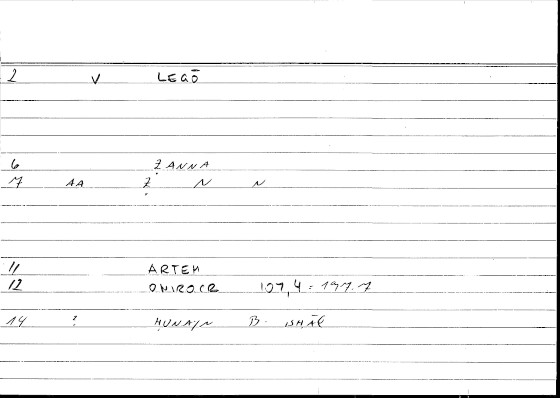 2 V LEGŌ
6 ẒANNA
7 AA Ẓ N N
11 ARTEM
12 ONIROCR 107,4 = 197.7
14 ? ḤUNAYN B. ISḤĀQ